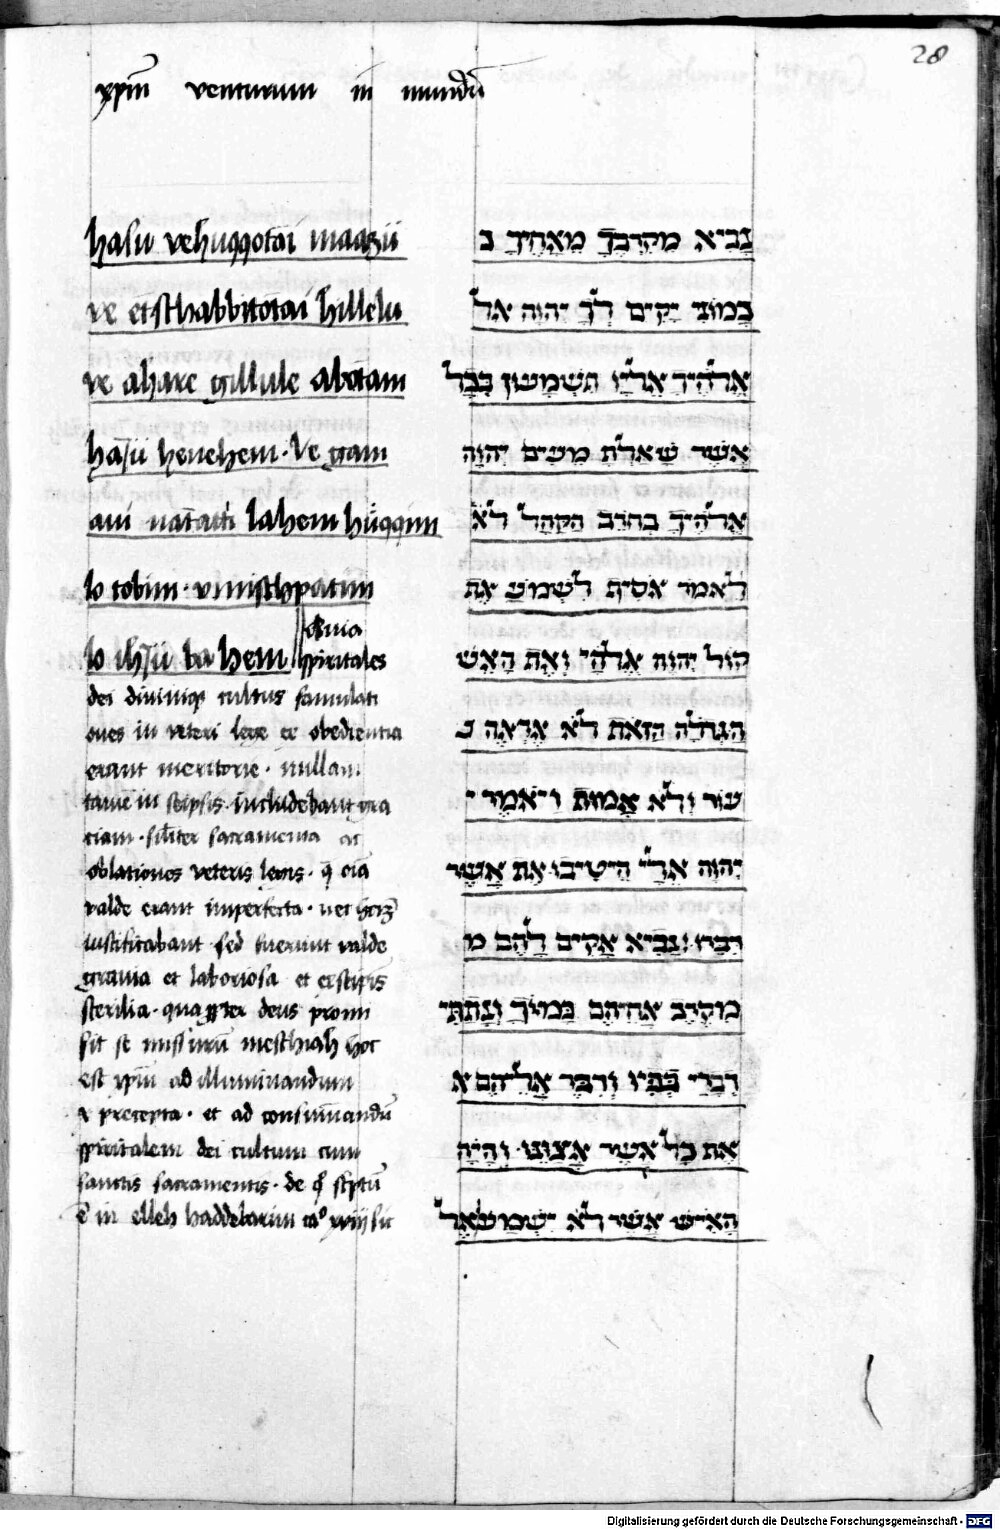 28
xpm venturum in mundu
hasu vehuqqotai maazu
ve etschabbitotai hillelu
ve ahare gillule abotam
hasu henehem · Ve gam
ani natatti lahem huqqim
lo tobim · umischpatim
lo ihsu ba hem
spiritales
dei diuinique cultus famulati
ones in veteri lege ex obedientia
erant meritorie · nullam
tame in seipsis includebant gra
ciam · siliter sacramenta ac
oblationes veteris legis · q eia
valde erant imperfecta · nec
iustificabant sed fuerunt valde
grauia et laboriosa et ex seipsis
sterilia · quapropter deus promi
sit se missurum meschiah hoc
est xpm ad illuminandum
precepta · et ad consumandu
spiritalem dei cultum cum
sanctis sacramentis · de q scptu
e in elleh haddebarim ca° xviij sic
נָבִיא מִקִּרְבְּךָ מֵאַחֶיךָ כ
כָּמוֹנִי יָקִים לְךָ יְהוָה אל
אֱלֹהֶיךָ אֵלָיו תִּשְׁמָעוּן כְּכֹל
אֲשֶׁר שָׁאַלְתָּ מֵעִם יְהוָה
אֱלֹהֶיךָ בְּחֹרֵב הַקָּהָל לֹא
לֵאמֹר אֹסִיף לִשְׁמֹעַ אֶת
קוֹל יְהוָה אֱלֹהָי וְאֶת הָאֵשׁ
הַגְּדֹלָה הַזֹּאת לֹא אֶרְאֶה ע
עוֹד וְלֹא אָמוּת וַיֹּאמֶר י
יְהוָה אֵלָי הֵיטִיבוּ אֶת אֲשֶׁר
דִּבֵּרוּ נָבִיא אָקִים לָהֶם מ
מִקֶּרֶב אֲחֵיהֶם כָּמוֹךָ וְנָתַתִּי
דְבָרַי בְּפִיו וְדִבֶּר אֲלֵיהֶם א
אֵת כָּל אֲשֶׁר אֲצַוֶּנּוּ וְהָיָה
הָאִישׁ אֲשֶׁר לֹא יִשְׁמַע אֶל
Digitalisierung gefördert durch die Deutsche Forschungsgemeinschaft - DFG